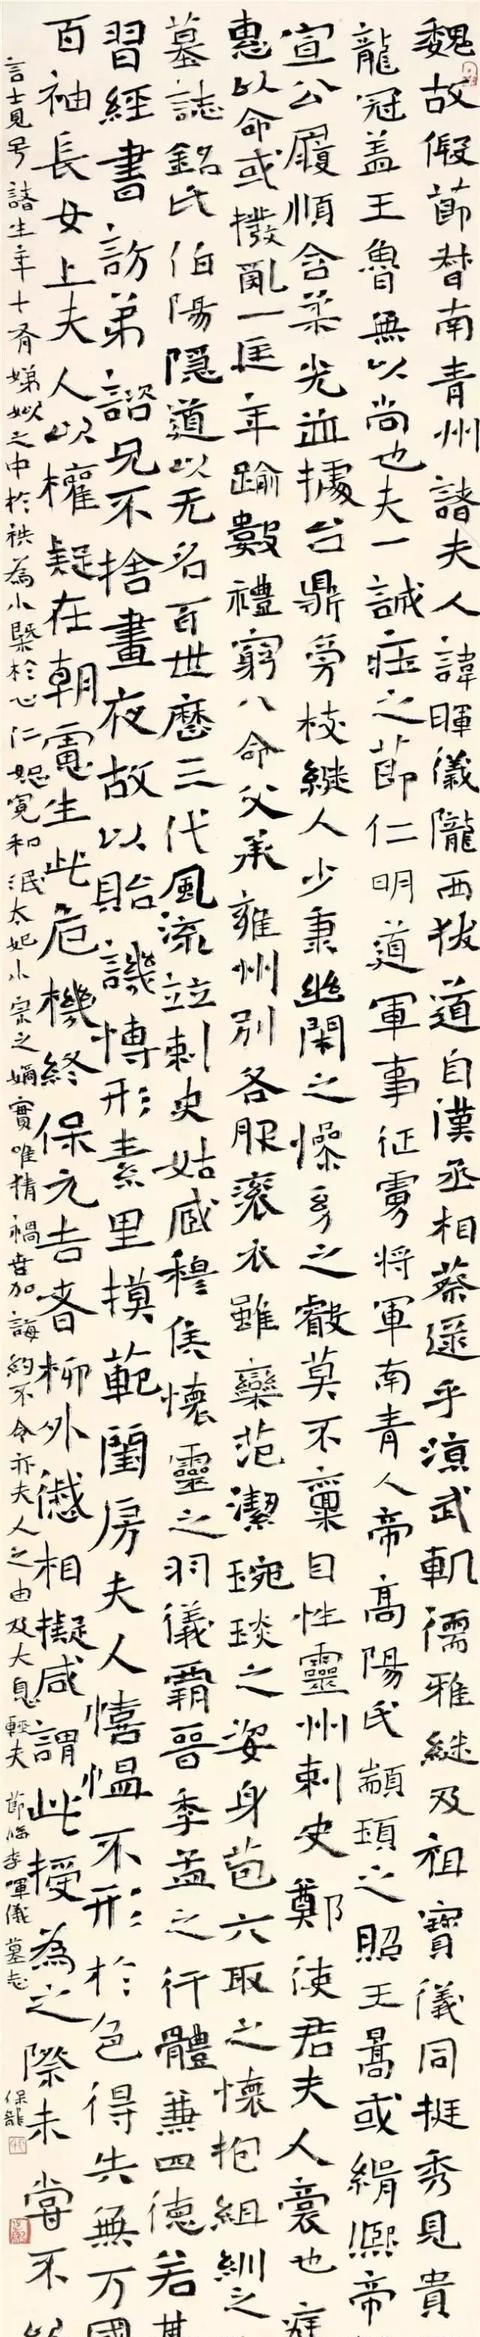 魏故假節督南青州諸夫人諱暉儀隴西狄道自漢丞相蔡遂乎涼武軌儒雅繼及祖寶儀同挺秀見貴
龍冠蓋王魯無以尚也夫一誠莊之節仁明道軍事征虜將軍南青人帝高陽氏顓頊之照王暠或緝熙帝
宣公履順含柔光並據台鼎旁枝繼人少秉幽閑之懆身之叡莫不稟自性靈州刺史鄭使君夫人囊也
惠以命或撥亂一匡年踰數禮窮八命父承雍州別各服袞衣雖欒范潔琬琰之姿身苞六取之懷抱組紃之
墓誌銘氏伯陽隱道以无名百世歷三代風流竝刺史姑臧穆侯懷靈之羽儀霸晉季孟之行體兼四德若其
習經書訪弟諮兄不捨晝夜故以貽譏愽形素里摸範閨房夫人憘慍不形於色得失無万國
百袖長女上夫人以權疑在朝電生此危機終保元吉者柳外慽相擬咸謂此授為之際未嘗不
言士見号諸生年十有娣姒之中於袟為小槩於心仁恕寬和泯太妃小宗之嫡實唯猜禍葚加誨約不令亦夫人之由及大息輕夫 節臨李暉儀墓志 保龍